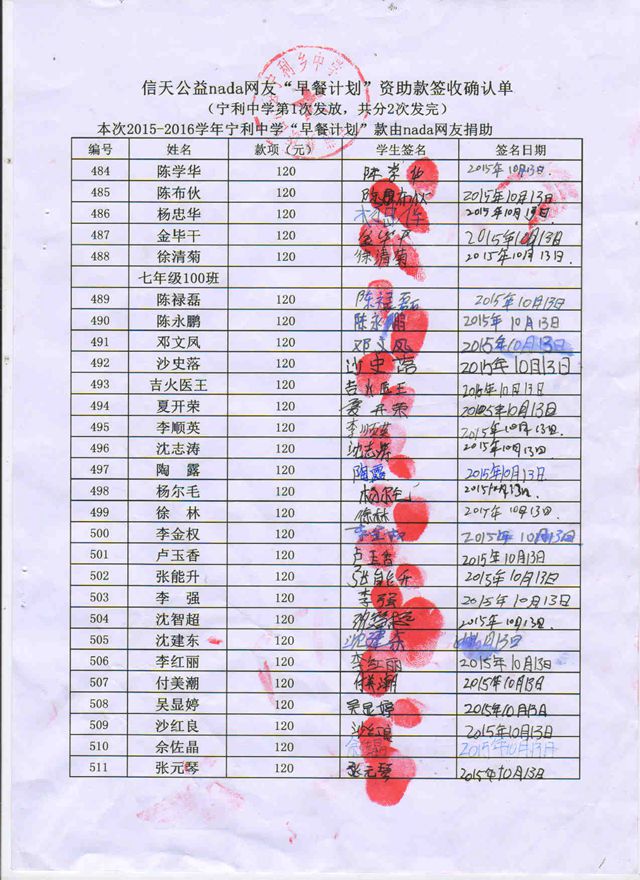 信天公益nada网友“早餐计划”资助款签收确认单
（宁利中学第1次发放，共分2次发完）
本次2015-2016学年宁利中学“早餐计划”款由nada网友捐助
编号 姓名 款项（元） 学生签名 签名日期
484 陈学华 120 陈学华 2015年10月13日.
485 陈布伙 120 陈布伙 2015年10月13日
486 杨忠华 120 2015年10月13日
487 金毕干 120 金毕干 2015年10月13日
488 徐清菊 120 徐清菊 2015年10月13日.
七年级100班
489 陈禄磊 120 陈禄磊 2015年10月13日
490 陈永鹏 120 陈永鹏 2015年10月13日
491 邓文凤 120 邓文凤 2015年10月13日
492 沙史落 120 沙史落 2015年10月13日
493 吉火医王 120 吉火医王 2015年10月13日
494 夏开荣 120 夏开荣 2015年10月13日
495 李顺英 120 李顺英 2015年10月13日.
496 沈志涛 120 沈志涛 2015年10月13日.
497 陶 露 120 陶露 2015年10月13日
498 杨尔毛 120 杨尔毛 2015年10月13日.
499 徐 林 120 徐林 2015年10月13日
500 李金权 120 李金权 2015年10月13日
501 卢玉香 120 卢玉香 2015年10月13日
502 张能升 120 张能升 2015年10月13日
503 李 强 120 李强 2015年10月13日
504 沈智超 120 沈智超 2015年10月13日.
505 沈建东 120 沈建东 10月13日
506 李红丽 120 李红丽 2015年10月13日
507 付美潮 120 付美潮 2015年10月13日
508 吴显婷 120 吴显婷 2015年10月13日
509 沙红良 120 沙红良 2015年10月13日
510 佘佐晶 120 2015年10月13日
511 张元琴 120 张元琴 2015年10月13日